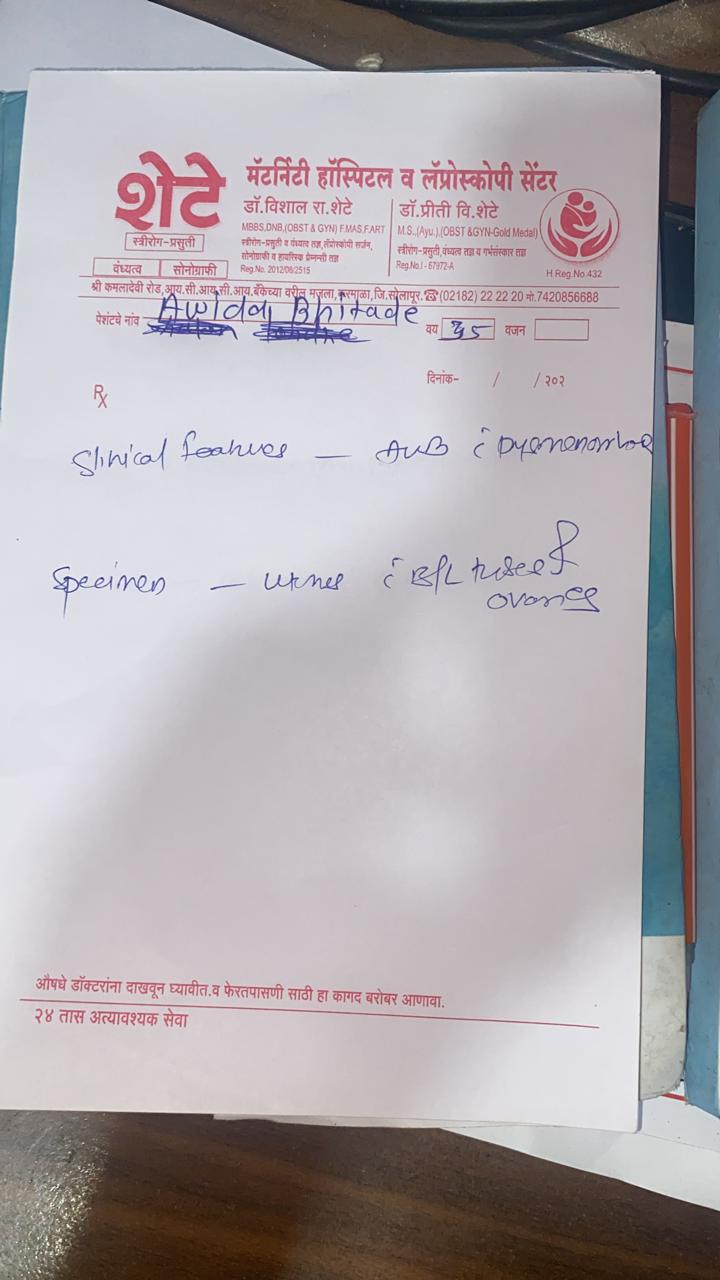 शेटे
स्त्रीरोग-प्रसुती
वंध्यत्व सोनोग्राफी
मॅटर्निटी हॉस्पिटल व लॅप्रोस्कोपी सेंटर
डॉ.विशाल रा.शेटे
MBBS,DNB,(OBST & GYN) F.MAS,F.ART
स्त्रीरोग-प्रसुती व वंध्यत्व तज्ञ,लॅप्रोस्कोपी सर्जन,
सोनोग्राफी व हायरिस्क प्रेग्नन्सी तज्ञ
Reg.No. 2012/06/2515
डॉ.प्रीती वि.शेटे
M.S.,(Ayu.),(OBST &GYN-Gold Medal)
स्त्रीरोग-प्रसुती,वंध्यत्व तज्ञ व गर्भसंस्कार तज्ञ
Reg.No.I - 67972-A
H.Reg.No.432
श्री कमलादेवी रोड,आय.सी.आय.सी.आय.बँकेच्या वरील मजला,करमाळा,जि.सोलापूर.☎(02182) 22 22 20 मो.7420856688
पेशंटचे नांव Bhitade वय 35 वजन
दिनांक- / / २०२
℞
Clinical features — AUB c̄ Dysmenorrhoe
Specimen — uterus c̄ B/L tubes &
ovaries
औषधे डॉक्टरांना दाखवून घ्यावीत.व फेरतपासणी साठी हा कागद बरोबर आणावा.
२४ तास अत्यावश्यक सेवा